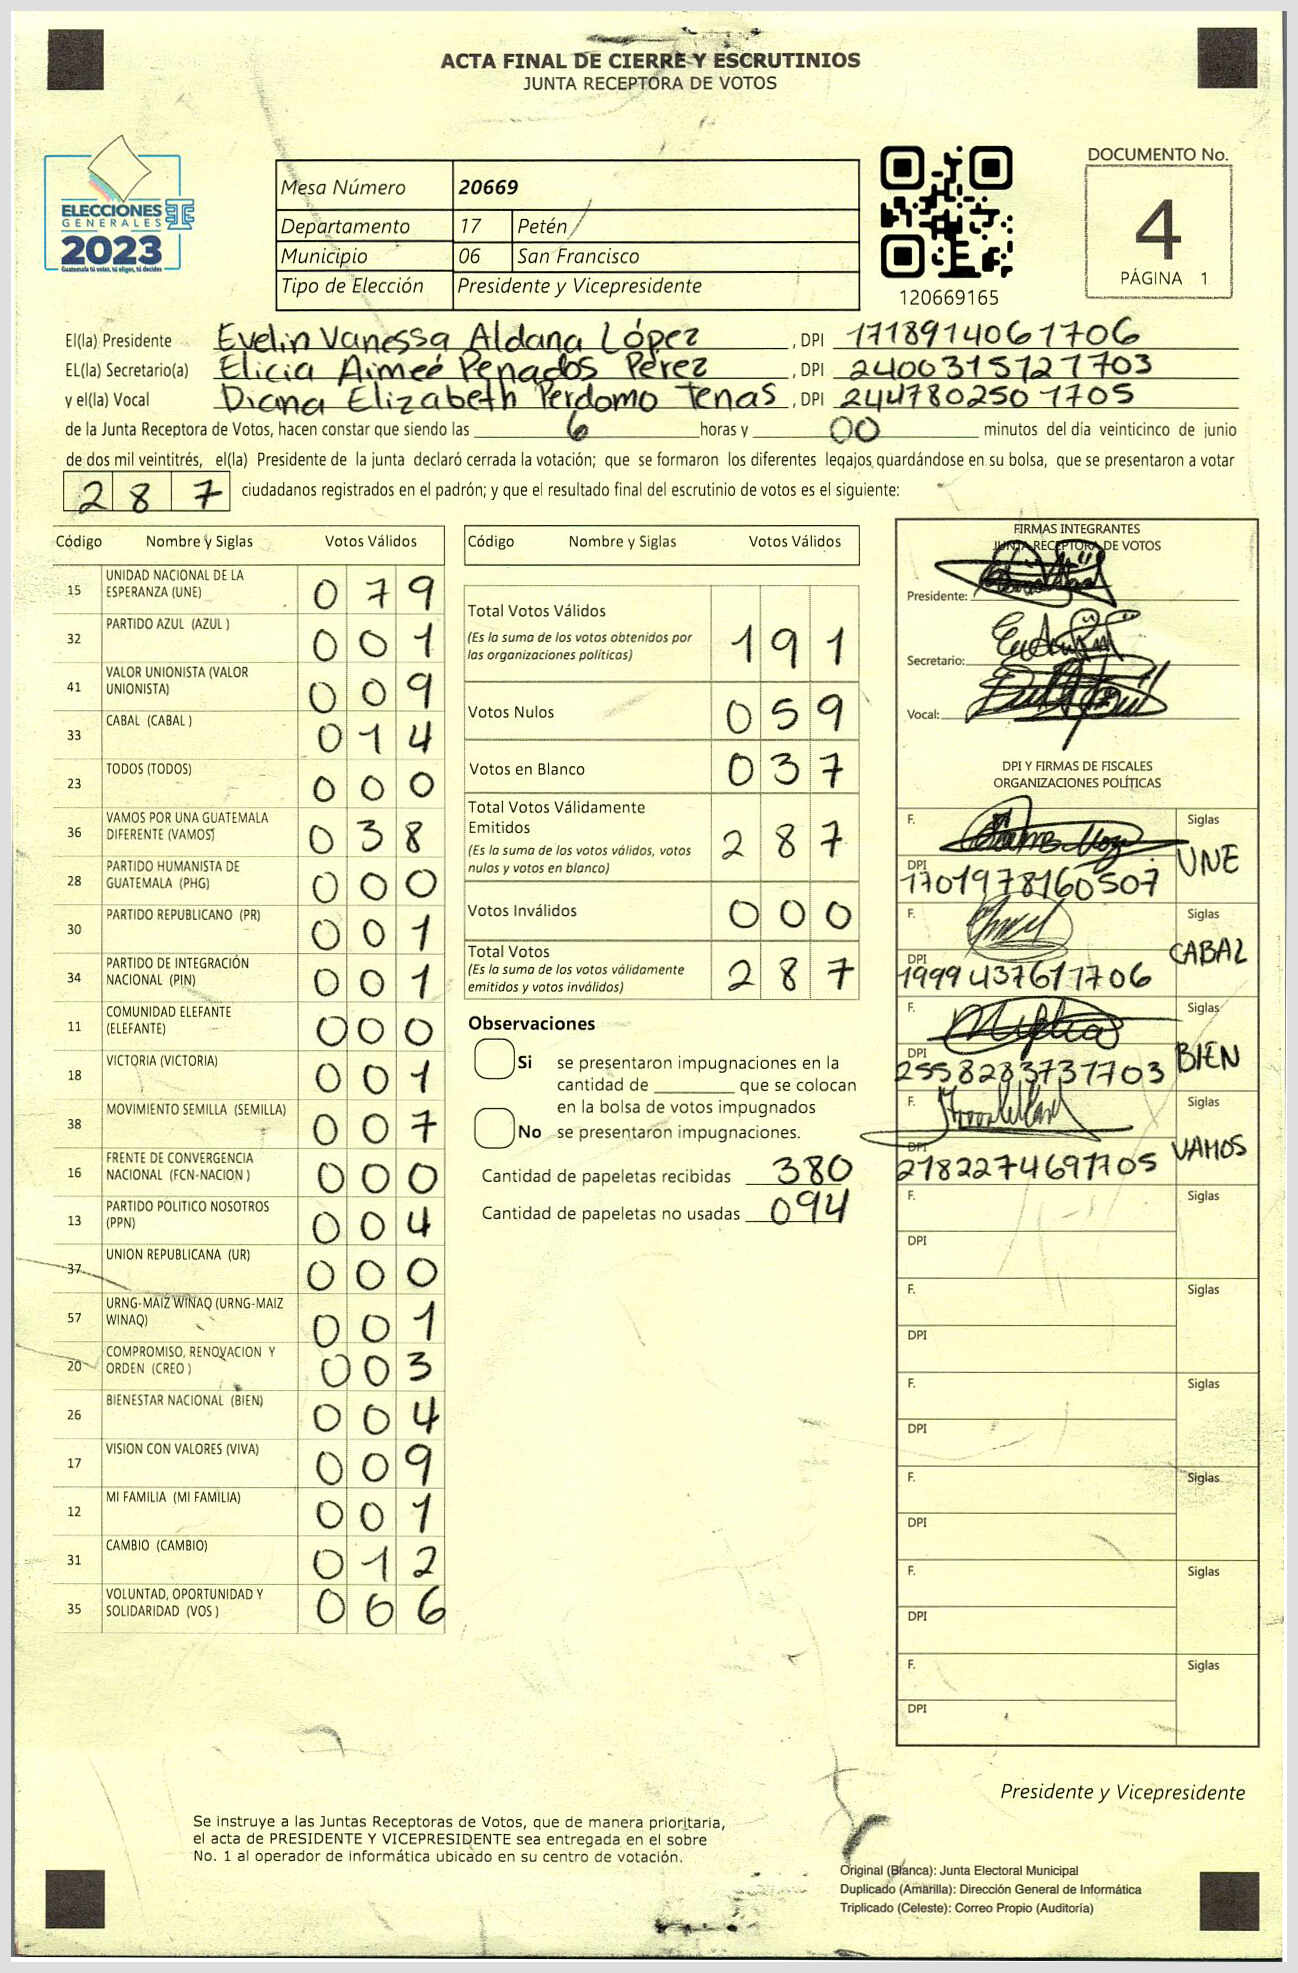 ACTA FINAL DE CIERRE Y ESCRUTINIOS
JUNTA RECEPTORA DE VOTOS
ELECCIONES
GENERALES
2023
Guatemala tú votas, tú eliges, tú decides
Mesa Número 20669
Departamento 17 Petén
Municipio 06 San Francisco
Tipo de Elección Presidente y Vicepresidente
120669165
DOCUMENTO No.
4
PÁGINA 1
El(la) Presidente Evelin Vanessa Aldana López , DPI 1718914061706
EL(la) Secretario(a) Elicia Aimeé Penados Pérez , DPI 2400315727703
y el(la) Vocal Diana Elizabeth Perdomo Tenas , DPI 2447802501705
de la Junta Receptora de Votos, hacen constar que siendo las 6 horas y 00 minutos del día veinticinco de junio
de dos mil veintitrés, el(la) Presidente de la junta declaró cerrada la votación; que se formaron los diferentes legajos guardándose en su bolsa, que se presentaron a votar
287 ciudadanos registrados en el padrón; y que el resultado final del escrutinio de votos es el siguiente:
Código Nombre y Siglas Votos Válidos
15 UNIDAD NACIONAL DE LA
ESPERANZA (UNE) 079
32 PARTIDO AZUL (AZUL ) 001
41 VALOR UNIONISTA (VALOR
UNIONISTA) 009
33 CABAL (CABAL ) 014
23 TODOS (TODOS) 000
36 VAMOS POR UNA GUATEMALA
DIFERENTE (VAMOS) 038
28 PARTIDO HUMANISTA DE
GUATEMALA (PHG) 000
30 PARTIDO REPUBLICANO (PR) 001
34 PARTIDO DE INTEGRACIÓN
NACIONAL (PIN) 001
11 COMUNIDAD ELEFANTE
(ELEFANTE) 000
18 VICTORIA (VICTORIA) 001
38 MOVIMIENTO SEMILLA (SEMILLA) 007
16 FRENTE DE CONVERGENCIA
NACIONAL (FCN-NACION ) 000
13 PARTIDO POLITICO NOSOTROS
(PPN) 004
37 UNION REPUBLICANA (UR) 000
57 URNG-MAIZ WINAQ (URNG-MAIZ
WINAQ) 001
20 COMPROMISO, RENOVACION Y
ORDEN (CREO ) 003
26 BIENESTAR NACIONAL (BIEN) 004
17 VISION CON VALORES (VIVA) 009
12 MI FAMILIA (MI FAMILIA) 001
31 CAMBIO (CAMBIO) 012
35 VOLUNTAD, OPORTUNIDAD Y
SOLIDARIDAD (VOS ) 006
Código Nombre y Siglas Votos Válidos
Total Votos Válidos 191
(Es la suma de los votos obtenidos por
las organizaciones políticas)
Votos Nulos 059
Votos en Blanco 037
Total Votos Válidamente
Emitidos 287
(Es la suma de los votos válidos, votos
nulos y votos en blanco)
Votos Inválidos 000
Total Votos 287
(Es la suma de los votos válidamente
emitidos y votos inválidos)
Observaciones
Si se presentaron impugnaciones en la
cantidad de ________ que se colocan
en la bolsa de votos impugnados
No se presentaron impugnaciones.
Cantidad de papeletas recibidas 380
Cantidad de papeletas no usadas 094
FIRMAS INTEGRANTES
JUNTA RECEPTORA DE VOTOS
Presidente:
Secretario:
Vocal:
DPI Y FIRMAS DE FISCALES
ORGANIZACIONES POLÍTICAS
F. Siglas
DPI 1701978160507 UNE
F. Siglas
DPI 1999437611706 CABAL
F. Siglas
DPI 2558283731703 BIEN
F. Siglas
DPI 2182274691705 VAMOS
F. Siglas
DPI
F. Siglas
DPI
F. Siglas
DPI
F. Siglas
DPI
F. Siglas
DPI
F. Siglas
DPI
Presidente y Vicepresidente
Se instruye a las Juntas Receptoras de Votos, que de manera prioritaria,
el acta de PRESIDENTE Y VICEPRESIDENTE sea entregada en el sobre
No. 1 al operador de informática ubicado en su centro de votación.
Original (Blanca): Junta Electoral Municipal
Duplicado (Amarilla): Dirección General de Informática
Triplicado (Celeste): Correo Propio (Auditoría)